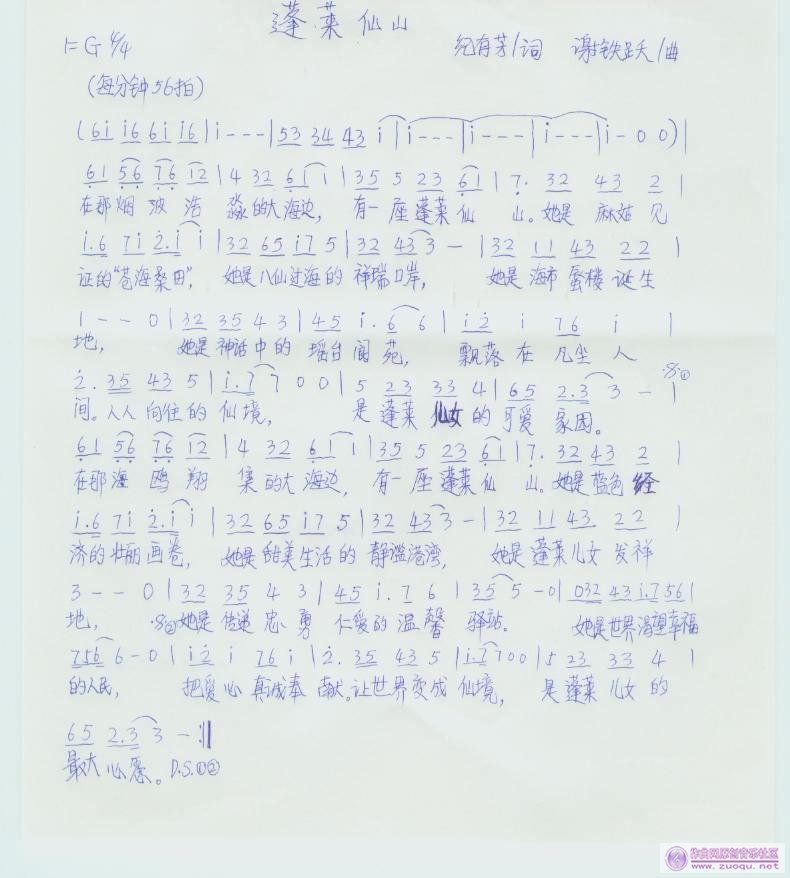 蓬莱仙山
1=G 4/4 纪有芳/词 谢铁跃/曲
(每分钟56拍)
(6i i6 6i i6 | i - - - | 53 34 43 i | i - - - | i - - - | i - - - | i - 0 0) |
61 56 76 12 | 4 32 61 1 | 35 5 23 61 | 7. 32 43 2 |
在那烟波浩淼的大海边, 有一座蓬莱仙山。她是麻姑见
i.6 7i 2.i i | 32 65 i7 5 | 32 43 3 - | 32 11 43 22 |
证的"苍海桑田", 她是八仙过海的祥瑞口岸, 她是海市蜃楼诞生
1 - - 0 | 32 35 4 3 | 45 i.6 6 | i2 i 76 i |
地, 她是神话中的瑶台阆苑, 飘落在凡尘人
2. 35 43 5 | i.7 7 0 0 | 5 23 33 4 | 65 2.3 3 - |
间。人人向往的仙境, 是蓬莱仙女的可爱家园。
61 56 76 12 | 4 32 61 1 | 35 5 23 61 | 7. 32 43 2 |
在那海鸥翔集的大海边, 有一座蓬莱仙山。她是蓝色经
i.6 7i 2.i i | 32 65 i7 5 | 32 43 3 - | 32 11 43 22 |
济的壮丽画卷, 她是甜美生活的静谧港湾, 她是蓬莱儿女发祥
3 - - 0 | 32 35 4 3 | 45 i.7 6 | 35 5 - 0 | 032 43 i.7 56 |
地, ·S·②她是传递忠勇仁爱的温馨驿站。 她是世界渴望幸福
756 6 - 0 | i2 i 76 i | 2. 35 43 5 | i.7 7 0 0 | 5 23 33 4 |
的人民, 把爱心真诚奉献。让世界变成仙境, 是蓬莱儿女的
65 2.3 3 - :||
最大心愿。D.S.①②
作曲网原创音乐社区
www.zuoqu.net